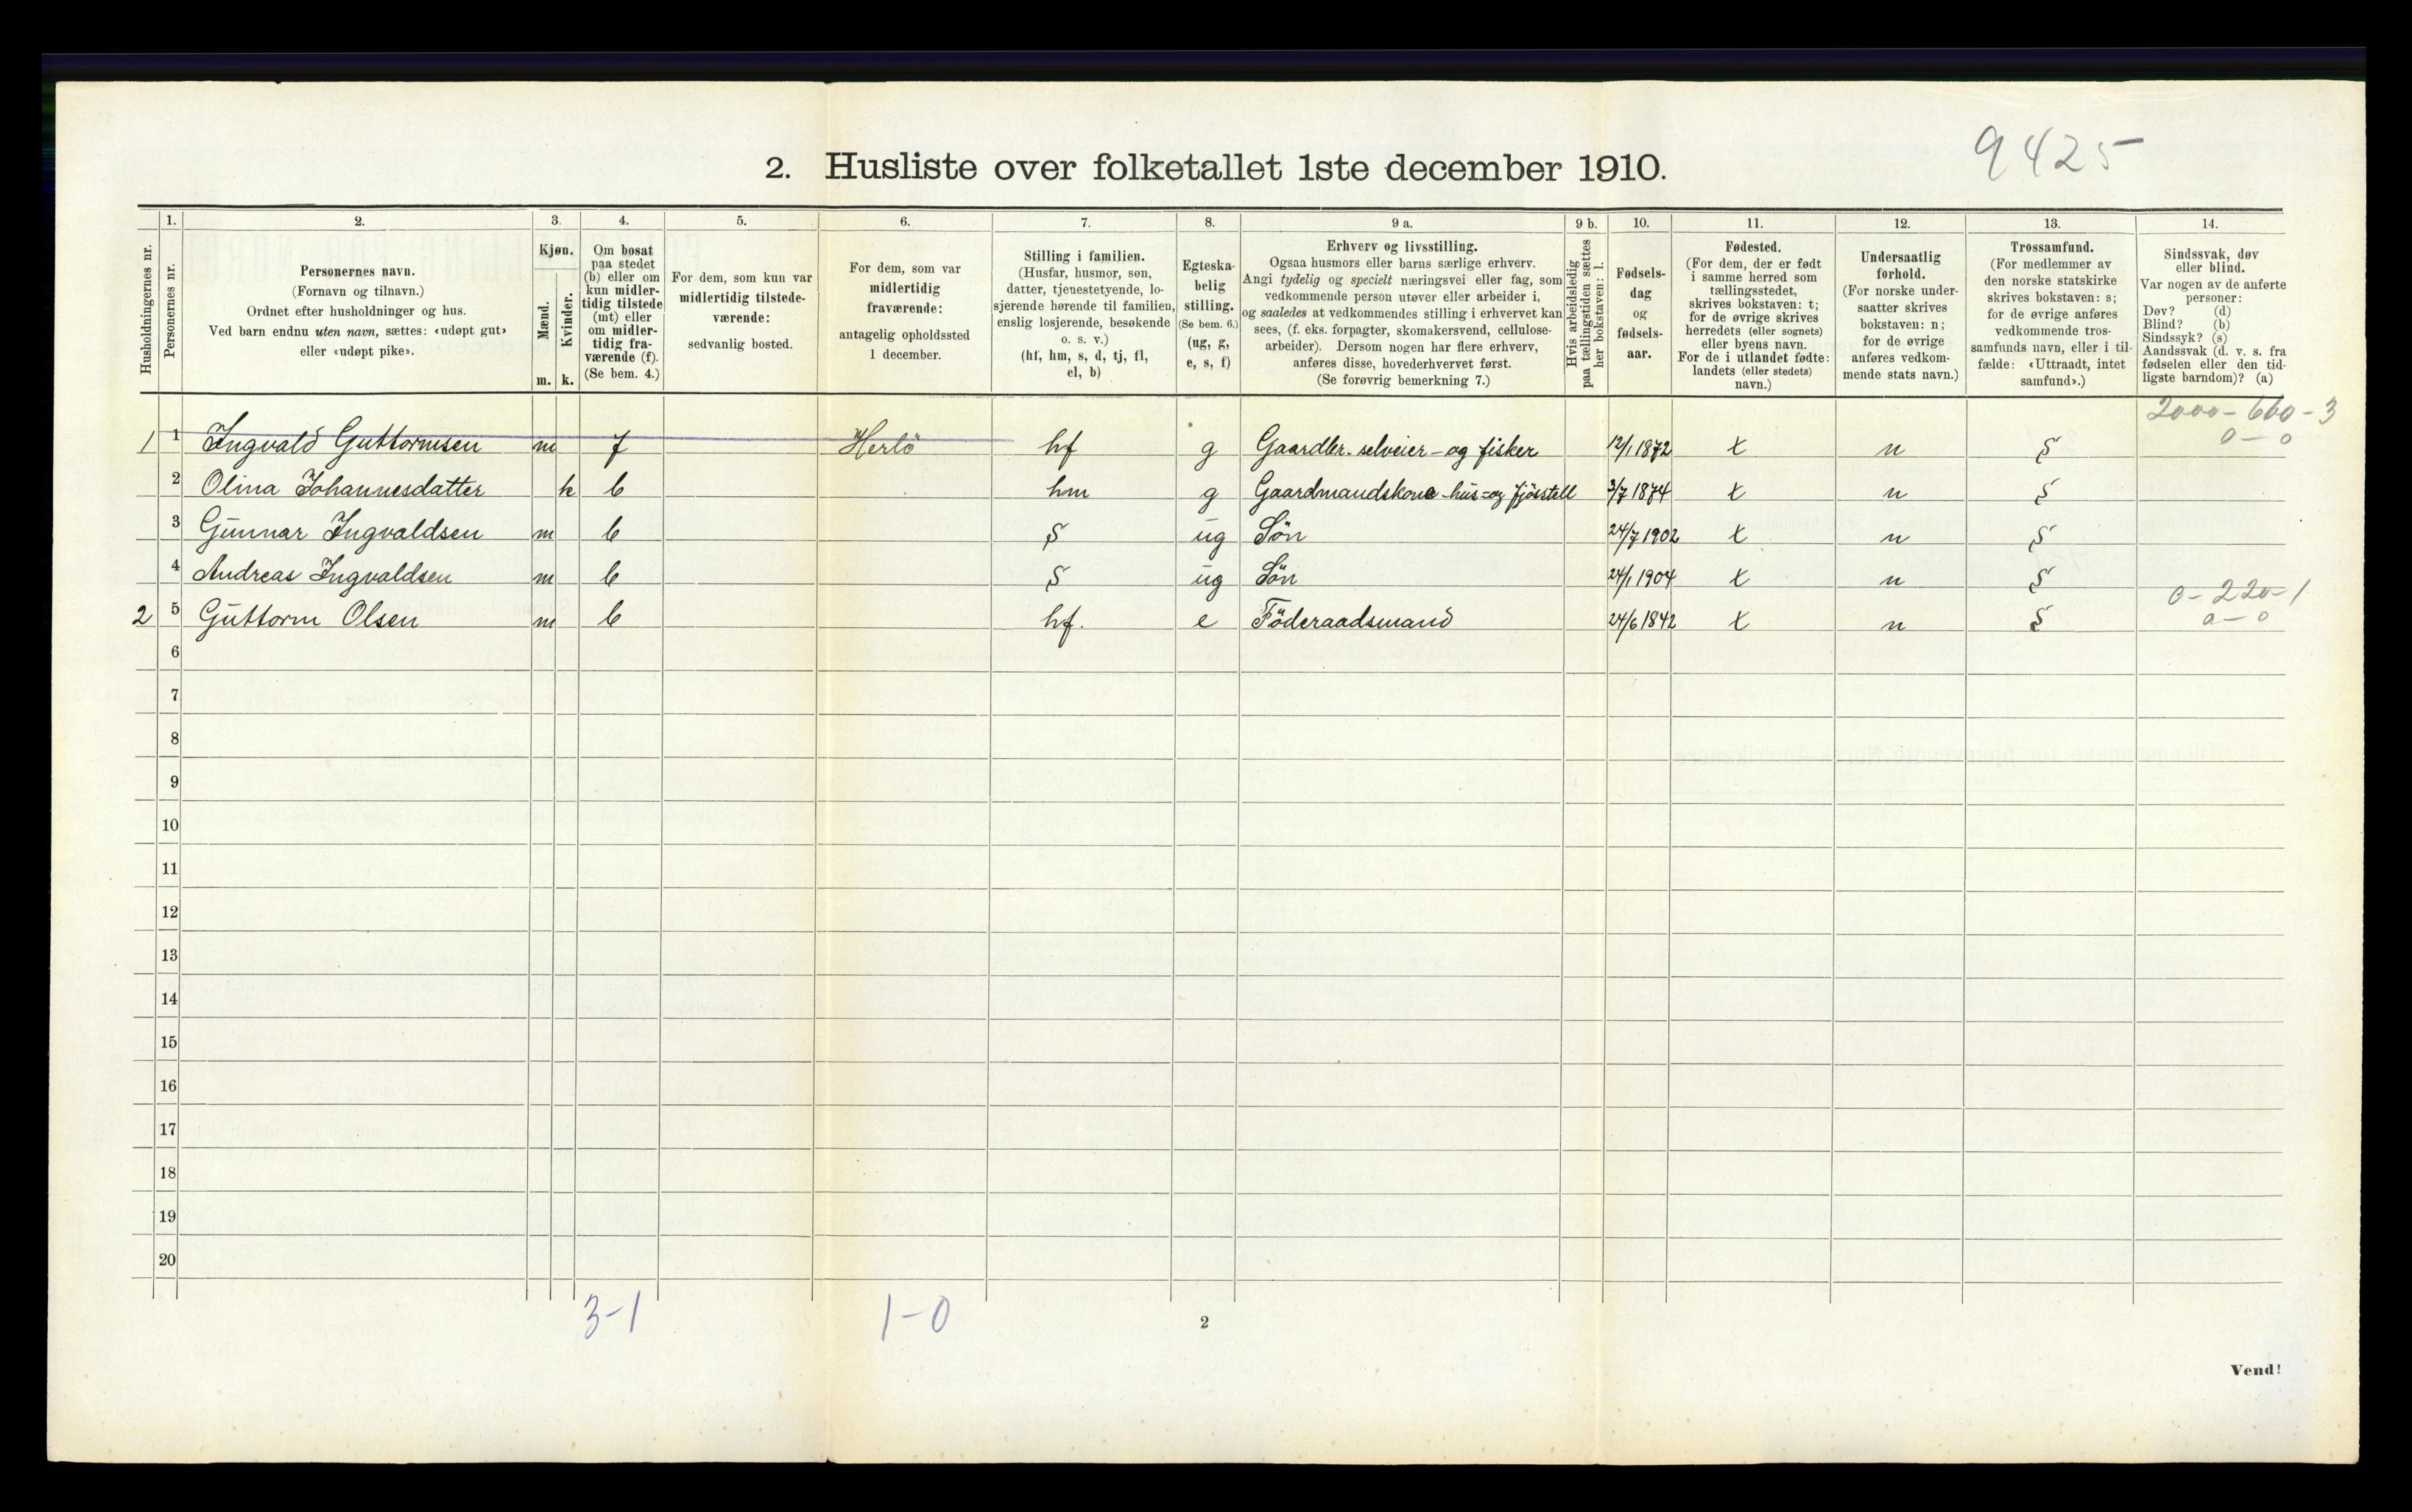 9425
2. Husliste over folketallet 1ste december 1910.
Husholdningernes nr.
1.
Personernes nr.
2.
Personernes navn.
(Fornavn og tilnavn.)
Ordnet efter husholdninger og hus.
Ved barn endnu uten navn, sættes: «udøpt gut»
eller «udøpt pike».
3.
Kjøn.
Mænd.
m.
Kvinder.
k.
4.
Om bosat
paa stedet
(b) eller om
kun midler-
tidig tilstede
(mt) eller
om midler-
tidig fra-
værende (f).
(Se bem. 4.)
5.
For dem, som kun var
midlertidig tilstede-
værende:
sedvanlig bosted.
6.
For dem, som var
midlertidig
fraværende:
antagelig opholdssted
1 december.
7.
Stilling i familien.
(Husfar, husmor, søn,
datter, tjenestetyende, lo-
sjerende hørende til familien,
enslig losjerende, besøkende
o. s. v.)
(hf, hm, s, d, tj, fl,
el, b)
8.
Egteska-
belig
stilling.
(Se bem. 6.)
(ug, g,
e, s, f)
9 a.
Erhverv og livsstilling.
Ogsaa husmors eller barns særlige erhverv.
Angi tydelig og specielt næringsvei eller fag, som
vedkommende person utøver eller arbeider i,
og saaledes at vedkommendes stilling i erhvervet kan
sees, (f. eks. forpagter, skomakersvend, cellulose-
arbeider). Dersom nogen har flere erhverv,
anføres disse, hovederhvervet først.
(Se forøvrig bemerkning 7.)
9 b.
Hvis arbeidsledig
paa tællingstiden sættes
her bokstaven: l.
10.
Fødsels-
dag
og
fødsels-
aar.
11.
Fødested.
(For dem, der er født
i samme herred som
tællingsstedet,
skrives bokstaven: t;
for de øvrige skrives
herredets (eller sognets)
eller byens navn.
For de i utlandet fødte:
landets (eller stedets)
navn.)
12.
Undersaatlig
forhold.
(For norske under-
saatter skrives
bokstaven: n;
for de øvrige
anføres vedkom-
mende stats navn.)
13.
Trossamfund.
(For medlemmer av
den norske statskirke
skrives bokstaven: s;
for de øvrige anføres
vedkommende tros-
samfunds navn, eller i til-
fælde: «Uttraadt, intet
samfund».)
14.
Sindssvak, døv
eller blind.
Var nogen av de anførte
personer:
Døv? (d)
Blind? (b)
Sindssyk? (s)
Aandssvak (d. v. s. fra
fødselen eller den tid-
ligste barndom)? (a)
2000-660-3
0-0
1 1 Ingvald Guttormsen m f Herlö hf g Gaardbr. selveier - og fisker 12/1 1872 t n S
2 Olina Johannesdatter k b hm g Gaardmandskone - hus- og fjösstell 3/7 1874 t n S
3 Gunnar Ingvaldsen m b S ug Sön 24/7 1902 t n S
4 Andreas Ingvaldsen m b S ug Sön 24/1 1904 t n S
0-220-1
2 5 Guttorm Olsen m b hf. e Föderaadsmand 24/6 1842 t n S 0-0
6
7
8
9
10
11
12
13
14
15
16
17
18
19
20
3-1 1-0
2
Vend!